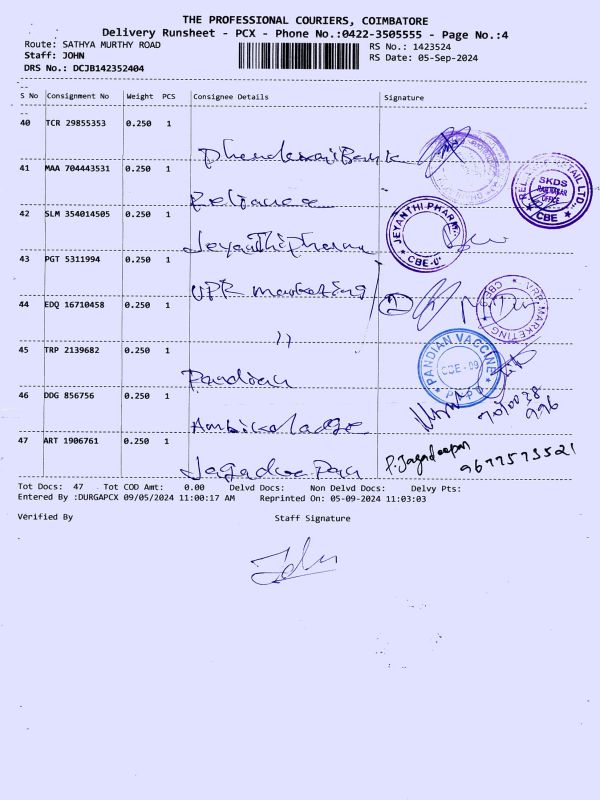 THE PROFESSIONAL COURIERS, COIMBATORE
Delivery Runsheet - PCX - Phone No.:0422-3505555 - Page No.:4
Route: SATHYA MURTHY ROAD RS No.: 1423524
Staff: JOHN RS Date: 05-Sep-2024
DRS No.: DCJB142352404
S No Consignment No Weight PCS Consignee Details Signature
40 TCR 29855353 0.250 1
41 MAA 704443531 0.250 1
Reliance
RELIANCE RETAIL LTD.
SKDS
RAMNAGAR
OFFICE
CBE
42 SLM 354014505 0.250 1
Jeyanthi pharma
JEYANTHI PHARMA
CBE-
43 PGT 5311994 0.250 1
VPR marketing
44 EDQ 16710458 0.250 1
"
VRR MARKETING
CBE-9
45 TRP 2139682 0.250 1
Pandian
PANDIAN VACCINE
CBE - 09
46 DDG 856756 0.250 1
Ambika lodge
7010038
996
47 ART 1906761 0.250 1
Jagadeepan
P. Jagadeepan
9677573521
Tot Docs: 47 Tot COD Amt: 0.00 Delvd Docs: Non Delvd Docs: Delvy Pts:
Entered By :DURGAPCX 09/05/2024 11:00:17 AM Reprinted On: 05-09-2024 11:03:03
Verified By Staff Signature
John